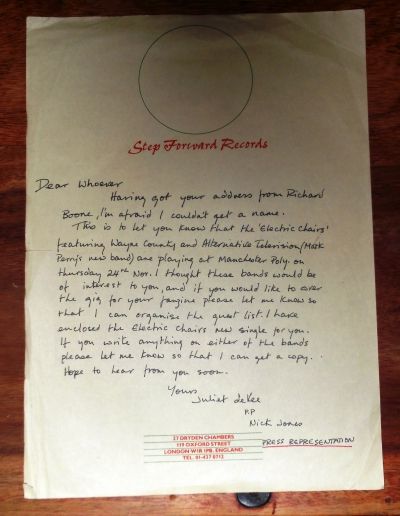 Step Forward Records
Dear Whoever
Having got your address from Richard
Boone, I'm afraid I couldn't get a name.
This is to let you know that the 'Electric Chairs'
featuring Wayne County and Alternative Television (Mark
Perry's new band) are playing at Manchester Poly. on
thursday 24th Nov. I thought these bands would be
of interest to you, and if you would like to cover
the gig for your fanzine please let me know so
that I can organise the guest list. I have
enclosed the Electric Chairs new single for you.
If you write anything on either of the bands
please let me know so that I can get a copy.
Hope to hear from you soon.
Yours
Juliet
P.P
Nick Jones
PRESS REPRESENTATION
27 DRYDEN CHAMBERS
119 OXFORD STREET
LONDON W1R 1PB. ENGLAND
TEL. 01-437 0712